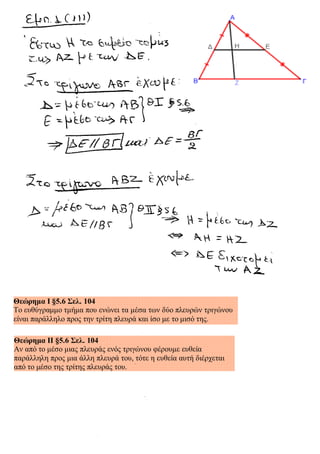 Εμπ. 1 (iii)
Έστω Η το σημείο τομής
της ΑΖ με την ΔΕ.
Α
Δ Η Ε
Β Ζ Γ
Στο τρίγωνο ΑΒΓ έχουμε:
Δ = μέσο της ΑΒ } ΘΙ §5.6
Ε = μέσο της ΑΓ
⇒ ΔΕ // ΒΓ και ΔΕ = ΒΓ/2
Στο τρίγωνο ΑΒΖ έχουμε
Δ = μέσο της ΑΒ } ΘΙΙ §5.6
και ΔΕ // ΒΓ
⇒ Η = μέσο της ΑΖ
⇔ ΑΗ = ΗΖ
⇔ ΔΕ διχοτομεί
την ΑΖ
Θεώρημα Ι §5.6 Σελ. 104
Το ευθύγραμμο τμήμα που ενώνει τα μέσα των δύο πλευρών τριγώνου
είναι παράλληλο προς την τρίτη πλευρά και ίσο με το μισό της.
Θεώρημα ΙΙ §5.6 Σελ. 104
Αν από το μέσο μιας πλευράς ενός τριγώνου φέρουμε ευθεία
παράλληλη προς μια άλλη πλευρά του, τότε η ευθεία αυτή διέρχεται
από το μέσο της τρίτης πλευράς του.